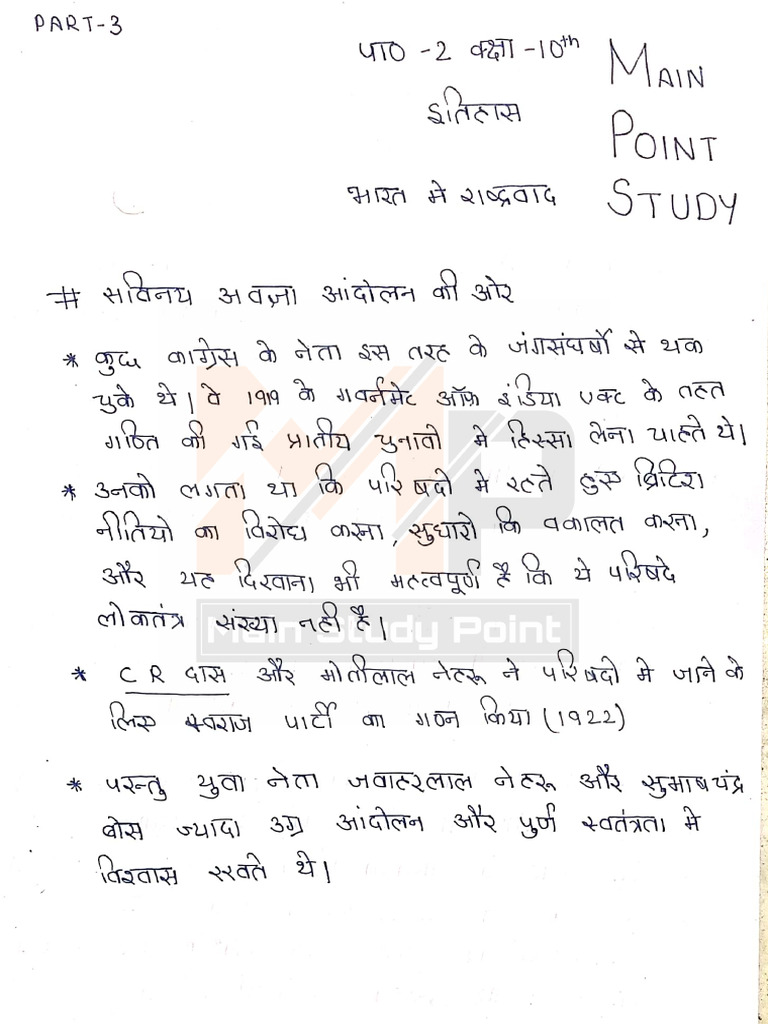 PART-3
पाठ -2 कक्षा -10th
इतिहास
भारत मे राष्ट्रवाद
MAIN
POINT
STUDY
# सविनय अवज्ञा आंदोलन की ओर
* कुछ काग्रेस के नेता इस तरह के जंगसंघर्षो से थक
चुके थे। वे 1919 के गवर्नमेट ऑफ़ इंडिया एक्ट के तहत
गठित की गई प्रातीय चुनावो मे हिस्सा लेना चाहते थे।
* उनको लगता था कि परिषदो मे रहते हुए ब्रिटिश
नीतियो का विरोध करना, सुधारो कि वकालत करना,
और यह दिखाना भी महत्वपूर्ण है कि ये परिषदे
लोकतंत्र संख्या नही है।
Main Study Point
* C R दास और मोतीलाल नेहरू ने परिषदो मे जाने के
लिए स्वराज पार्टी का गठन किया (1922)
* परन्तु युवा नेता जवाहरलाल नेहरू और सुभाषचंद्र
बोस ज्यादा उग्र आंदोलन और पुर्ण स्वतंत्रता मे
विश्वास रखते थे।